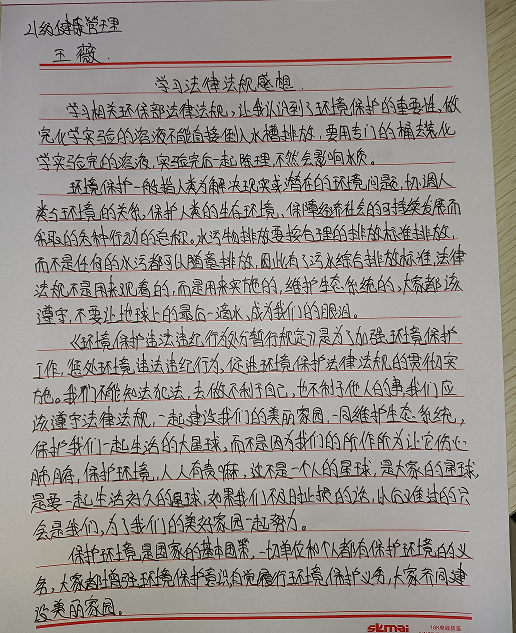 21级健康管理
王薇.
学习法律法规感想.
学习相关环保部法律法规,让我认识到了环境保护的重要性,做
完化学实验的溶液不能直接倒入水槽排放,要用专门的桶去装化
学实验完的溶液,实验完后一起处理,不然会影响水质。
环境保护一般指人类为解决现实或潜在的环境问题,协调人
类与环境的关系,保护人类的生存环境,保障经济社会的可持续发展而
采取的各种行动的总称。水污物排放要按合理的排放标准排放,
而不是任何的水污都可以随意排放,因此有了污水综合排放标准,法律
法规不是用来观看的,而是用来实施的,维护生态系统的,大家都该
遵守,不要让地球上的最后一滴水,成为我们的眼泪。
《环境保护违法违纪行为处分暂行规定》是为了加强环境保护
工作,惩处环境违法违纪行为,促进环境保护法律法规的贯彻实
施。我们不能知法犯法,去做不利于自己,也不利于他人的事,我们应
该遵守法律法规,一起建设我们的美丽家园,一同维护生态系统,
保护我们一起生活的大星球,而不是因为我们的所作所为让它伤心
,保护环境,人人有责嘛,这不是一个人的星球,是大家的星球,
是要一起生活好久的星球,如果我们不及时止损的话,以后难过的只
会是我们,为了我们的美好家园一起努力。
保护环境是国家的基本国策,一切单位和个人都有保护环境的义
务,大家都增强环境保护意识自觉履行环境保护义务,大家共同建
设美丽家园。
skmai